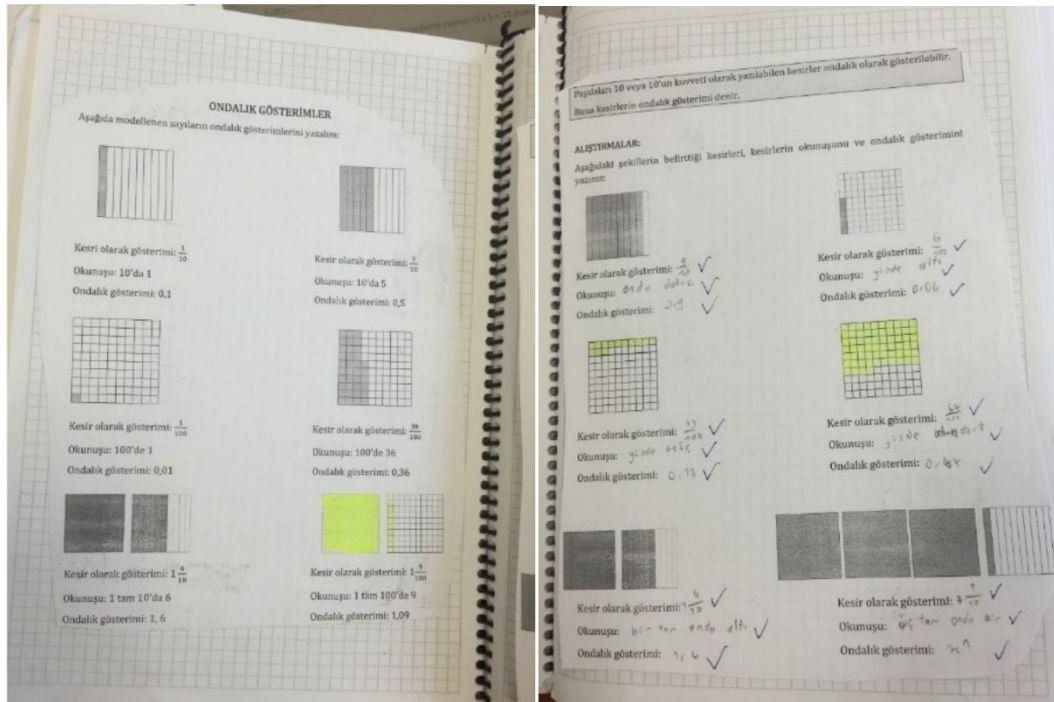 ONDALIK GÖSTERİMLER
Aşağıda modellenen sayıların ondalık gösterimlerini yazalım:
Kesri olarak gösterimi: 1/10
Okunuşu: 10'da 1
Ondalık gösterimi: 0,1
Kesir olarak gösterimi: 5/10
Okunuşu: 10'da 5
Ondalık gösterimi: 0,5
Kesir olarak gösterimi: 1/100
Okunuşu: 100'de 1
Ondalık gösterimi: 0,01
Kesir olarak gösterimi: 36/100
Okunuşu: 100'de 36
Ondalık gösterimi: 0,36
Kesir olarak gösterimi: 1 6/10
Okunuşu: 1 tam 10'da 6
Ondalık gösterimi: 1, 6
Kesir olarak gösterimi: 1 9/100
Okunuşu: 1 tam 100'de 9
Ondalık gösterimi: 1,09
Paydaları 10 veya 10'un kuvveti olarak yazılabilen kesirler ondalık olarak gösterilebilir.
Buna kesirlerin ondalık gösterimi denir.
ALIŞTIRMALAR:
Aşağıdaki şekillerin belirttiği kesirleri, kesirlerin okunuşunu ve ondalık gösterimini
yazınız:
Kesir olarak gösterimi: 9/10
Okunuşu: onda dokuz
Ondalık gösterimi: 0,9
Kesir olarak gösterimi: 6/100
Okunuşu: yüzde altı
Ondalık gösterimi: 0,06
Kesir olarak gösterimi: 13/100
Okunuşu: yüzde onüç
Ondalık gösterimi: 0,13
Kesir olarak gösterimi: 64/100
Okunuşu: yüzde
Ondalık gösterimi:
Kesir olarak gösterimi: 1 6/10
Okunuşu: bir tam onda altı
Ondalık gösterimi: 1,6
Kesir olarak gösterimi:
Okunuşu: üç tam onda bir
Ondalık gösterimi: